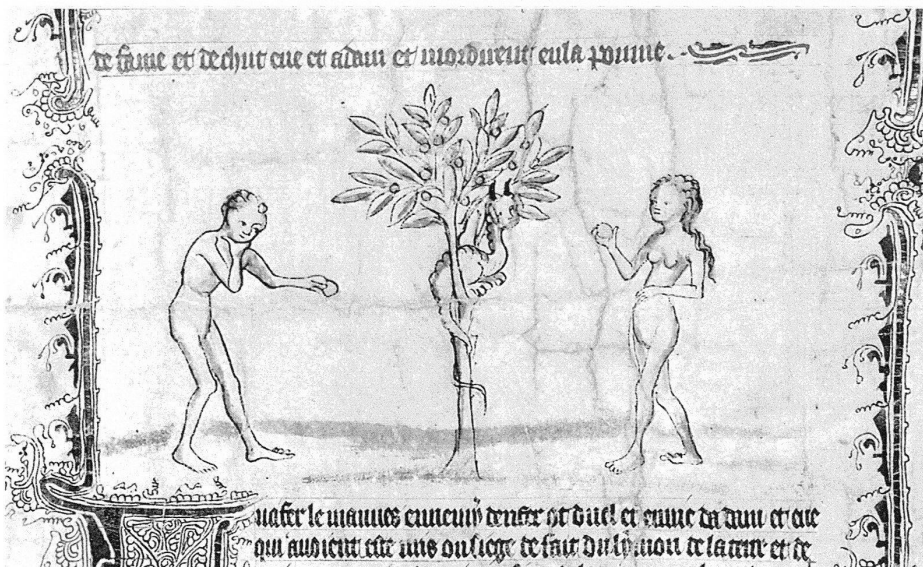 de fame et dechut eue et adam et mordirent en la pomme.
le mauues enuemis denfer ot duel et enuie dadam et eue
qui auoient este mis ou siege de fait du lymon de la terre et de